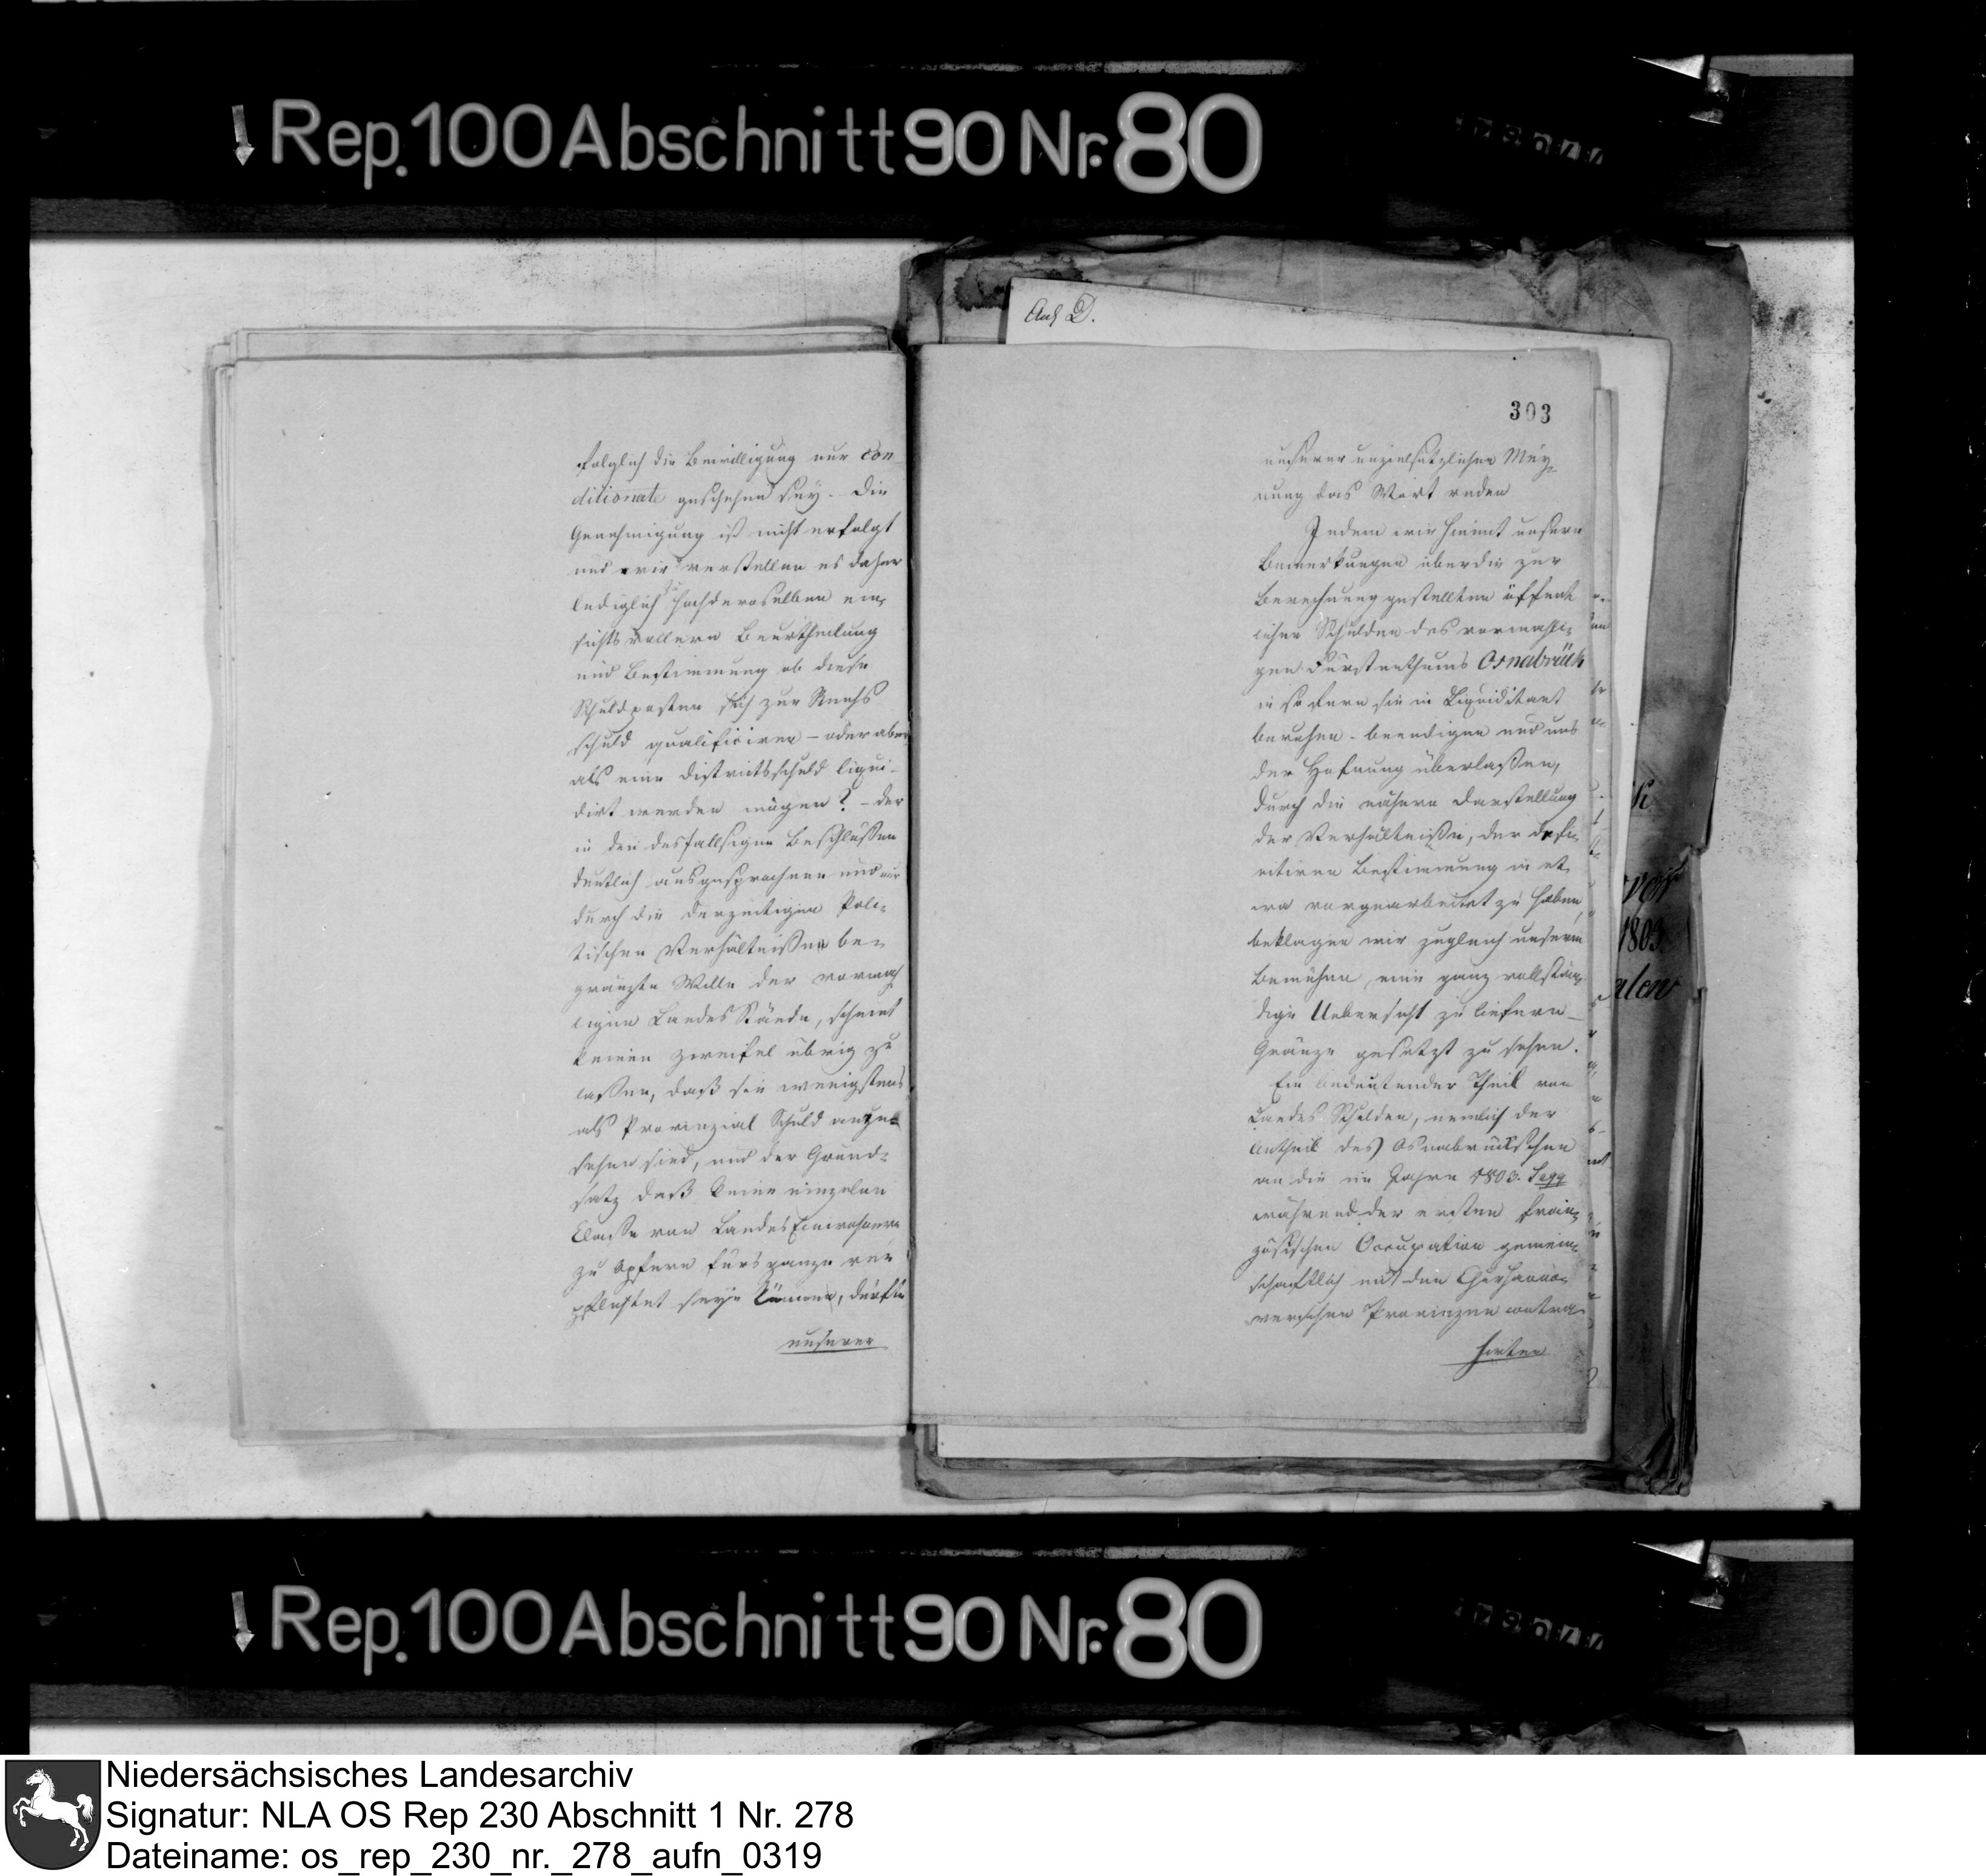 Rep. 100 Abschnitt 90 Nr. 80
folglich die Bewilligung nur con
ditionate geschehen sey. – Die
Genehmigung ist nicht erfolgt
und wir verstellen es daher
lediglich zu Hochderoselben ein-
sichtsvollern Beurtheilung
und Bestimmung ob diese
Schuldposten sich zur Reichs
schuld qualificiren – oder aber
als eine Districtsschuld liqui-
dirt werden mögen? – der
in den desfallsigen Beschlüssen
deutlich ausgesprochene und nur
durch die derzeitigen Poli-
tischen Verhältnißen be-
gränzte Wille der vormah
ligen Landes Stände, scheint
keinen Zweifel übrig zu
laßen, daß sie wenigstens
als Provinzial Schuld anzu-
sehen sind, und der Grund-
satz daß keine einzelne
Classe von Landes Einwohnern
zu Opfern fürs ganze ver
pflichtet seyn könne, dürfte
unserer
Anl D.
303
unserer unzielsetzlichen Mey-
nung das Wort reden
Indem wir hiemit unsere
Bemerkungen über die zur
Berechnung gestellten öffent
lichen Schulden des vormahli-
gen Fürstenthums Osnabrück
in so fern sie in Liquiditaet
beruhen – beendigen und uns
der Hofnung überlaßen,
durch die nähere Darstellung
der Verhältniße, der defi-
nitiven Bestimmung in et
wa vorgearbeitet zu haben,
beklagen wir zugleich unserm
Bemühen, eine ganz vollstän-
dige Uebersicht zu liefern –
Gränze gesetzt zu sehen.
Ein bedeutender Theil von
Landes Schulden, nemlich der
Antheil des Osnabrückschen
an die im Jahre 1803. Seqq
während der ersten fran-
zösischen Occupation gemein-
schaftlich mit den Churhanno-
verschen Provinzen contra
hirten
1803
Rep. 100 Abschnitt 90 Nr. 80
Niedersächsisches Landesarchiv
Signatur: NLA OS Rep 230 Abschnitt 1 Nr. 278
Dateiname: os_rep_230_nr._278_aufn_0319